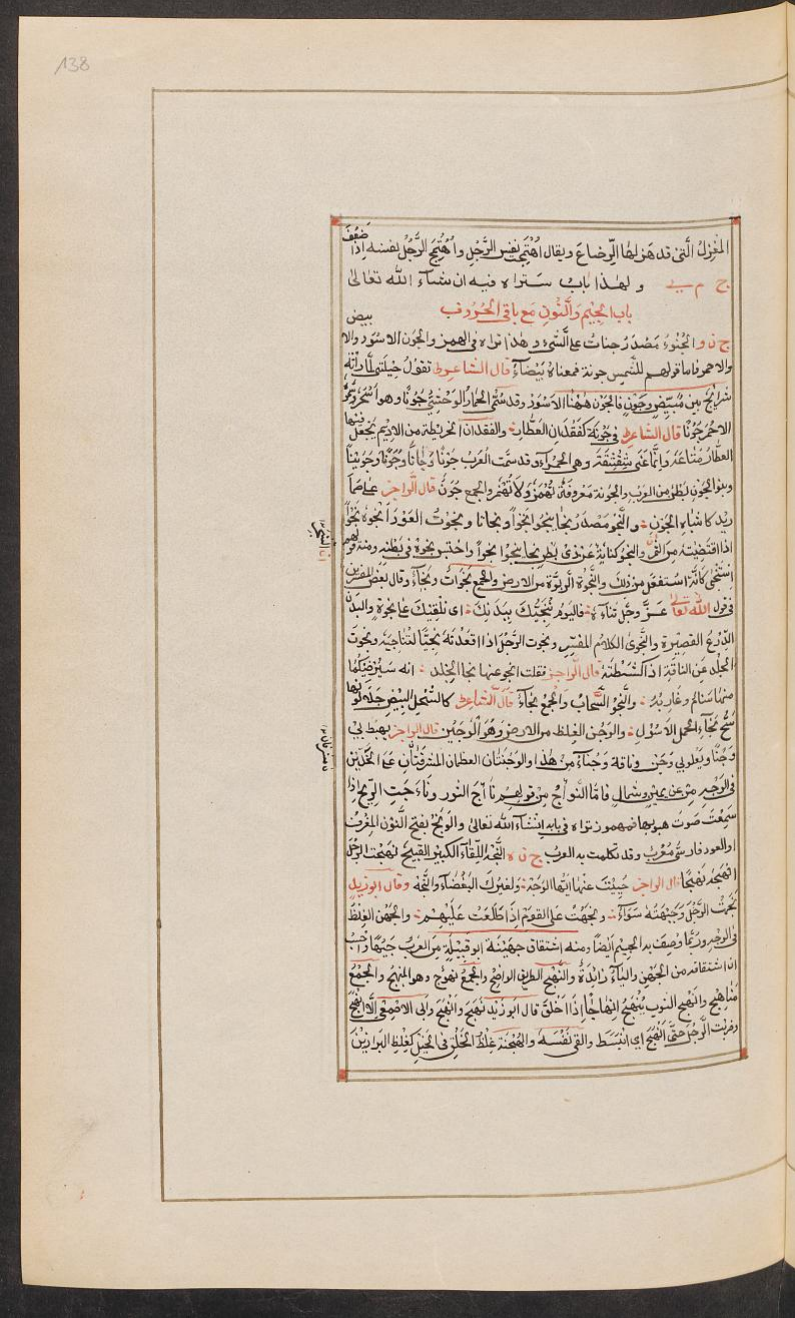 138
المغزل التى قد هزلها الرضاع ويقال اهتمج نفس الرجل واهتمج الرجل بفسه اذا ضعف
ج م ي ولهذا باب ستراه فيه ان شاء الله تعالى
باب الجيم والنون مع باقى الحروف
ج ن و الجنوء مصدر جنات على الشىء وهذا تراه فى الهمز والجون الاسود والابيض
والاحمر فاما قولهم للشمس جونة فمعناه بيضاء قال الشاعر تقول خليلتى لما راته
شرائج بين مبيض وجون فالجون ههنا الاسود وقد سمى الحمار الوحشى جونا وهو
الاحمر جونا قال الشاعر فى جونة كقفدان العطار والقفدان الخريطة من الاديم يجعل فيها
العطار متاعه وانما عنى شقشقة وهى الحمراء وقد سمت العرب جونا وجونا وجوينا
وبنو الجون بطن من العرب والجونة معروفة تهمز ولا تهمز والجمع جون قال الراجز على
كاشباه الجون والنجو مصدر نجا ينجو نجوا ونجاتا ونجوت العود انجوه نجوا
اذا اقتضبته من والنجو كناية عن ذى بطن نجا ينجوا نجوا واحتبس نجوه فى بطنه ومنه قولهم
استنجى كانه استفعل من ذلك والنجوة الربوة من الارض والجمع نجوات ونجاء وقال بعض المفسرين
فى قول الله تعالى عز وجل ثناؤه فاليوم ننجيك ببدنك اى نلقيك على نجوة والبدن
الدرع القصيرة والنجوى الكلام المفسر ونجوت الرجل اذا اقعدته نجيا لتناجيه ونجوت
الجلد عن الناقة اذا كشطته قال الراجز فقلت انجو عنها نجا الجلد انه سيرضيكما
منها سنام وغاربه والنجو السحاب والجمع نجاء قال الشاعر كالسحل البيض جلا لونها
سح نجاء الحمل الاسول والوجن الغلظ من الارض وهو الوجين قال الراجز يهبط بى
وجنا ويعلو بى وجن وناقة وجناء من هذا والوجنتان العظمان المشرفتان على الخدين
فى الوجه من عن يمين وشمال فاما النوأج من قولهم ناج الثور وناءجت الريح اذا
سمعت صوت هبوبها فمهموز تراه فى بابه انشاء الله تعالى والونج بفتح النون المزهر
او العود فارسى معرب وقد تكلمت به العرب ج ن ه النجه اللقاء الكبير القبيح نجهت الرجل
انجهه نجها قال الراجز حييت عنها ايها الوجه ولغيرك البغضاء والنجه وقال ابو زيد
نجهت الرجل وجبهته سواء ونجهت على القوم اذا طلعت عليهم والجهن الغلظ
فى الوجه وربما وصف به الجسم ايضا ومنه اشتقاق جهينة ابو قبيلة من العرب
ان اشتقاقه من الجهن والياء زائدة والنهج الطريق الواضح والجمع نهوج وهو المنهج والجمع
مناهج وانهج الثوب ينهج انهاجا اذا اخلق قال ابو زيد نهج وانهج وابى الاصمعى الا انهج
وضربت الرجل حتى انهج اى انبسط والقى نفسه والهجنة غلظ الخلق فى الخيل كغلظ البراذين